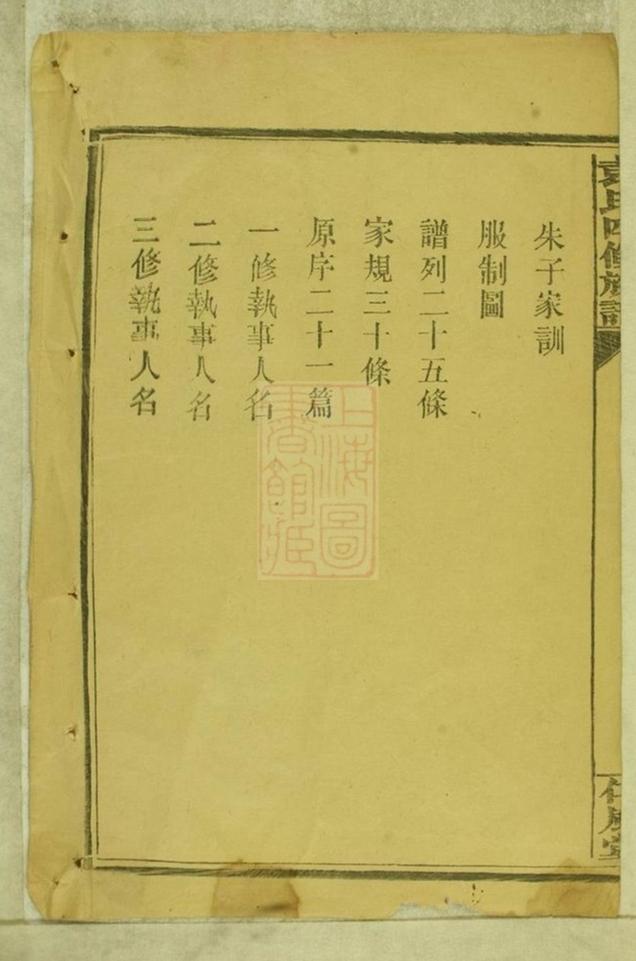 袁氏四修族譜
朱子家訓
服制圖
譜列二十五條
家規三十條
原序二十一篇
一修執事人名
二修執事人名
三修執事人名
上海圖
書館藏